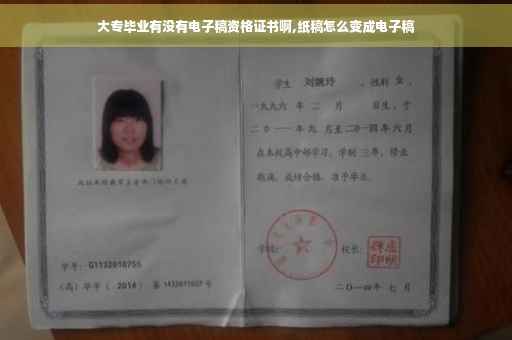 大专毕业有没有电子稿资格证书啊,纸稿怎么变成电子稿
学生 刘婉玲 , 性别 女 ,
一九九六 年 二 月 日生，于
二0一一 年 九 月至 二0一四 年 六 月
在本校高中部学习，学制 三 年，修业
期满，成绩合格，准予毕业。
学校:
校长:
学号: G1132010755
(高) 毕字 ( 2014 ) 第 1432011027 号
二〇一四年 七 月